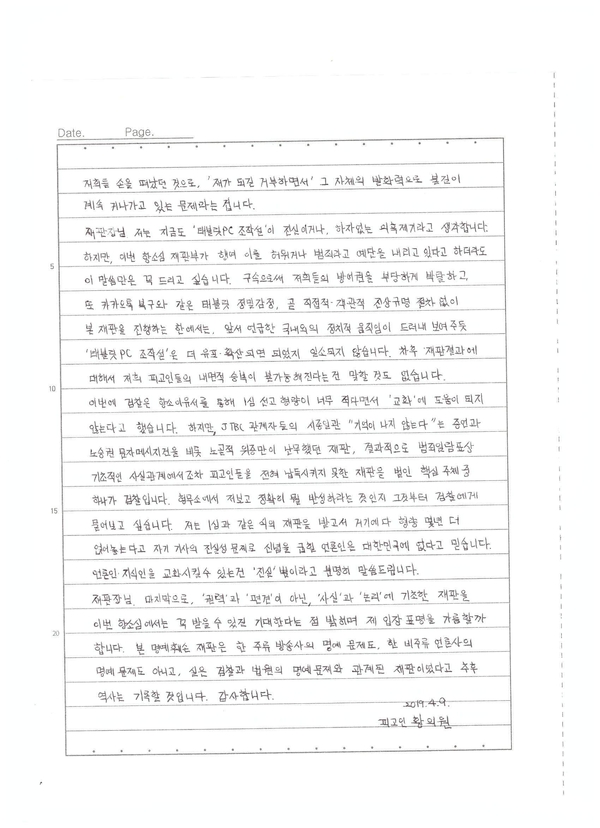 Date. Page.
저희를 손을 떠났던 것으로, '재가 되길 거부하면서' 그 자체의 발화력으로 불길이
계속 커나가고 있는 문제라는 겁니다.
재판장님 저는 지금도 '태블릿PC 조작설'이 진실이거나, 하자없는 의혹제기라고 생각합니다.
하지만, 이번 항소심 재판부가 행여 이를 허위거나 범죄라고 예단을 내리고 있다고 하더라도
5 이 말씀만은 꼭 드리고 싶습니다. 구속으로써 저희들의 방어권을 부당하게 박탈하고,
또 카카오톡 복구와 같은 태블릿 정밀감정, 곧 직접적·객관적 진상규명 절차 없이
본 재판을 진행하는 한에서는, 앞서 언급한 국내외의 정치적 움직임이 드러내 보여주듯
'태블릿PC 조작설'은 더 유포·확산되면 되었지 일소되지 않습니다. 차후 재판결과에
대해서 저희 피고인들의 내면적 승복이 불가능해진다는건 말할 것도 없습니다.
10 이번에 검찰은 항소이유서를 통해 1심 선고 형량이 너무 적다면서 '교화'에 도움이 되지
않는다고 했습니다. 하지만, JTBC 관계자들의 시종일관 "기억이 나지 않는다"는 증언과
노승권 문자메시지건을 비롯 노골적 위증만이 난무했던 재판, 결과적으로 범죄일람표상
기초적인 사실관계에서조차 피고인들을 전혀 납득시키지 못한 재판을 벌인 핵심 주체 중
하나가 검찰입니다. 형무소에서 저보고 정확히 뭘 반성하라는 것인지 그것부터 검찰에게
15 물어보고 싶습니다. 저는 1심과 같은 식의 재판을 받고서 거기에다 형량 몇년 더
얹어놓는다고 자기 기사의 진실성 문제로 신념을 굽힐 언론인은 대한민국에 없다고 믿습니다.
언론인·지식인을 교화시킬수 있는건 '진실' 뿐이라고 분명히 말씀드립니다.
재판장님. 마지막으로, '권력'과 '편견'이 아닌, '사실'과 '논리'에 기초한 재판을
이번 항소심에서는 꼭 받을 수 있길 기대한다는 점 밝히며 제 입장 표명을 가름할까
20 합니다. 본 명예훼손 재판은 한 주류 방송사의 명예 문제도, 한 비주류 언론사의
명예 문제도 아니고, 실은 검찰과 법원의 명예 문제와 관계된 재판이었다고 추후
역사는 기록할 것입니다. 감사합니다.
2019. 4. 9.
피고인 황의원